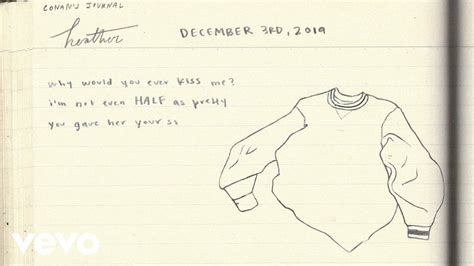 CONAN'S JOURNAL
heather
DECEMBER 3RD, 2019
why would you ever KISS me?
i'm not even HALF as pretty
you gave her your s
vevo